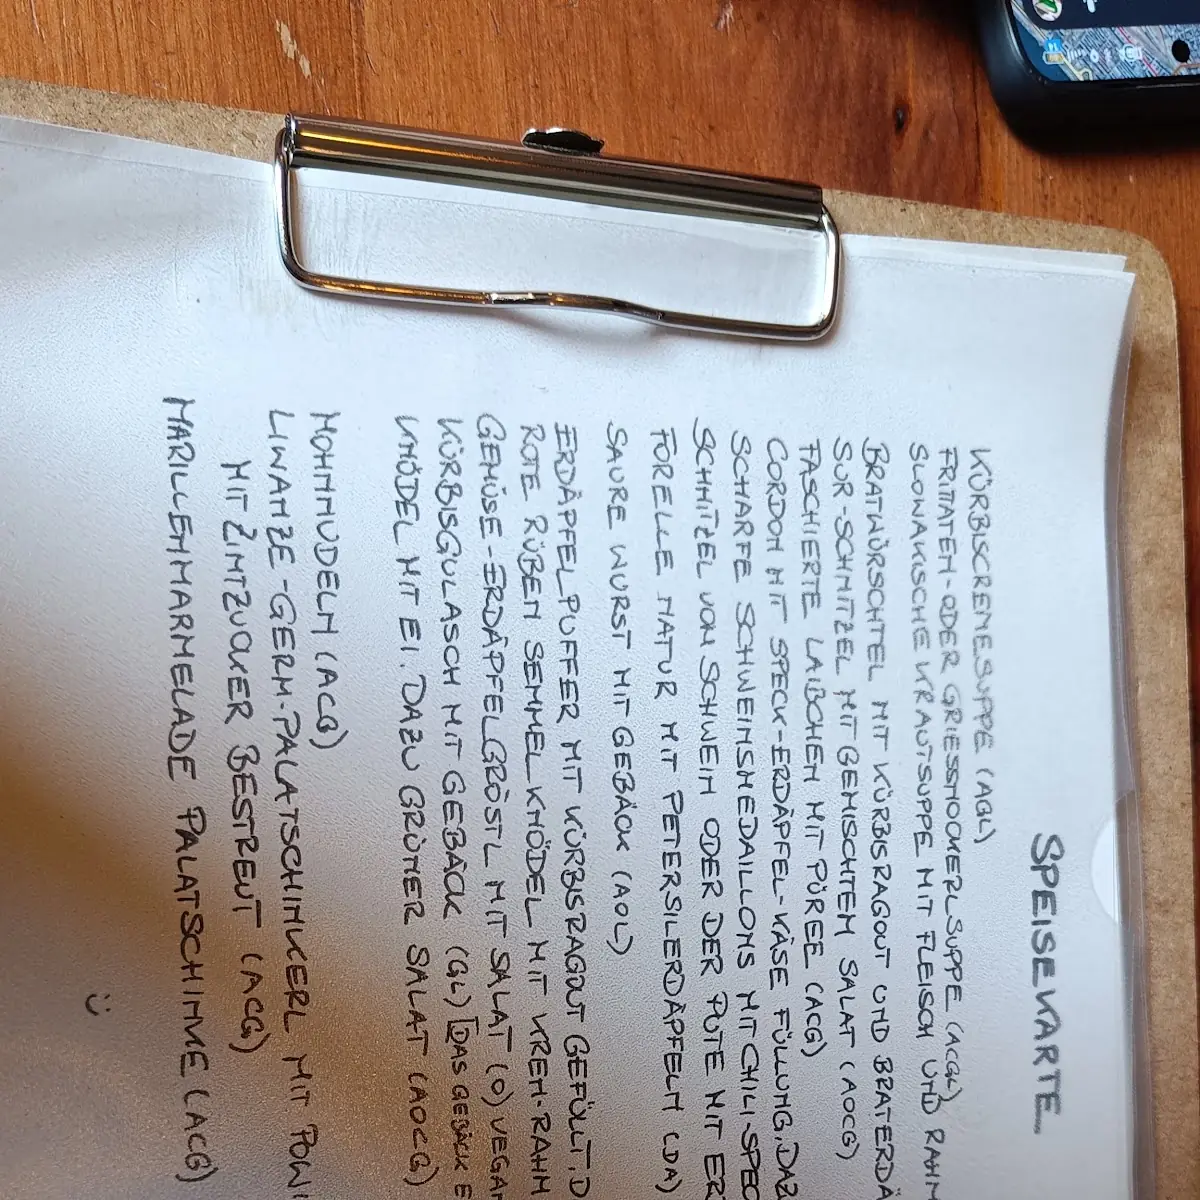 SPEISEKARTE...
KÜRBISCREMESUPPE (AGL)
FRITTATEN-ODER GRIESSNOCKERLSUPPE (ACGL)
SLOWAKISCHE KRAUTSUPPE MIT FLEISCH UND RAHM
BRATWÜRSCHTEL MIT KÜRBISRAGOUT UND BRATERDÄ
SUR-SCHNITZEL MIT GEMISCHTEM SALAT (AOCG)
FASCHIERTE LAIBCHEN MIT PÜREE (ACG)
CORDON MIT SPECK-ERDÄPFEL-KÄSE FÜLLUNG, DAZ
SCHARFE SCHWEINSMEDAILLONS MIT CHILI-SPEC
SCHNITZEL VOM SCHWEIN ODER DER PUTE MIT ER
FORELLE NATUR MIT PETERSILERDÄPFELN (DA)
SAURE WURST MIT GEBÄCK (AOL)
ERDÄPFELPUFFER MIT KÜRBISRAGOUT GEFÜLLT, D
ROTE RÜBEN SEMMELKNÖDEL MIT KREN-RAHM
GEMÜSE-ERDÄPFELGRÖSTL MIT SALAT (O) VEGAN
KÜRBISGULASCH MIT GEBÄCK (GL) [DAS GEBÄCK E
KNÖDEL MIT EI. DAZU GRÜNER SALAT (AOCG)
MOHNNUDELN (ACG)
LIWANZE-GERM-PALATSCHINKERL MIT POWI
MIT ZIMTZUCKER BESTREUT (ACG)
MARILLENMARMELADE PALATSCHINKE (ACG)
:)